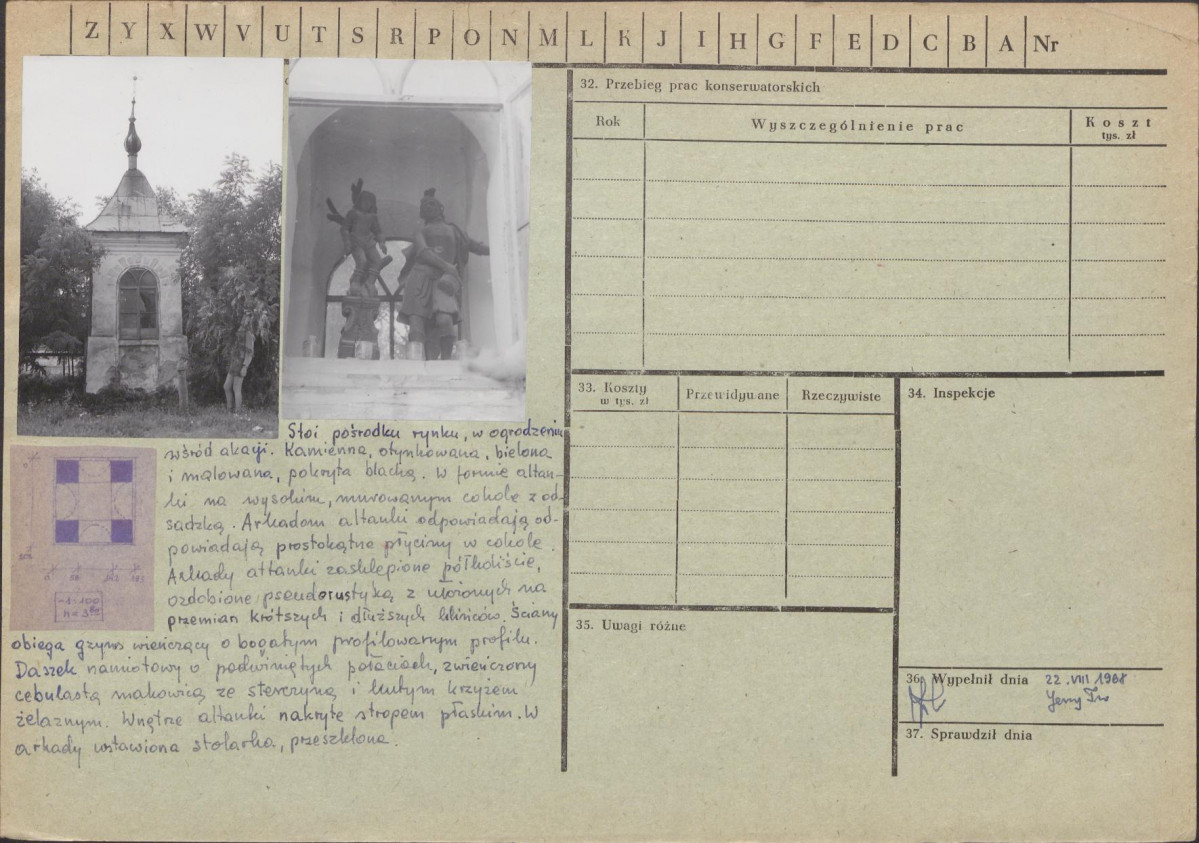 Z Y X W V U T S R P O N M L K J I H G F E D C B A Nr
Stoi pośrodku rynku, w ogrodzeniu
wśród akacji. Kamienna, otynkowana, bielona
i malowana, pokryta blachą. W formie altan-
ki na wysokim, murowanym cokole z od-
sadzką. Arkadom altanki odpowiadają od-
powiadają prostokątne płyciny w cokole.
Arkady altanki zasklepione półkoliście,
ozdobione pseudorustyką z ułożonych na
przemian krótszych i dłuższych klińców. Ściany
obiega gzyms wieńczący o bogatym profilowanym profilu.
Daszek namiotowy o podwiniętych połaciach, zwieńczony
cebulastą makowicą ze sterczyną i kutym krzyżem
żelaznym. Wnętrze altanki nakryte stropem płaskim. W
arkady wstawiona stolarka, przeszklona.
1:100
32. Przebieg prac konserwatorskich
Rok
Wyszczególnienie prac
Koszt
tys. zł
33. Koszty
w tys. zł
Przewidywane
Rzeczywiste
34. Inspekcje
35. Uwagi różne
36. Wypełnił dnia 22.VIII 1968
Jerzy
37. Sprawdził dnia